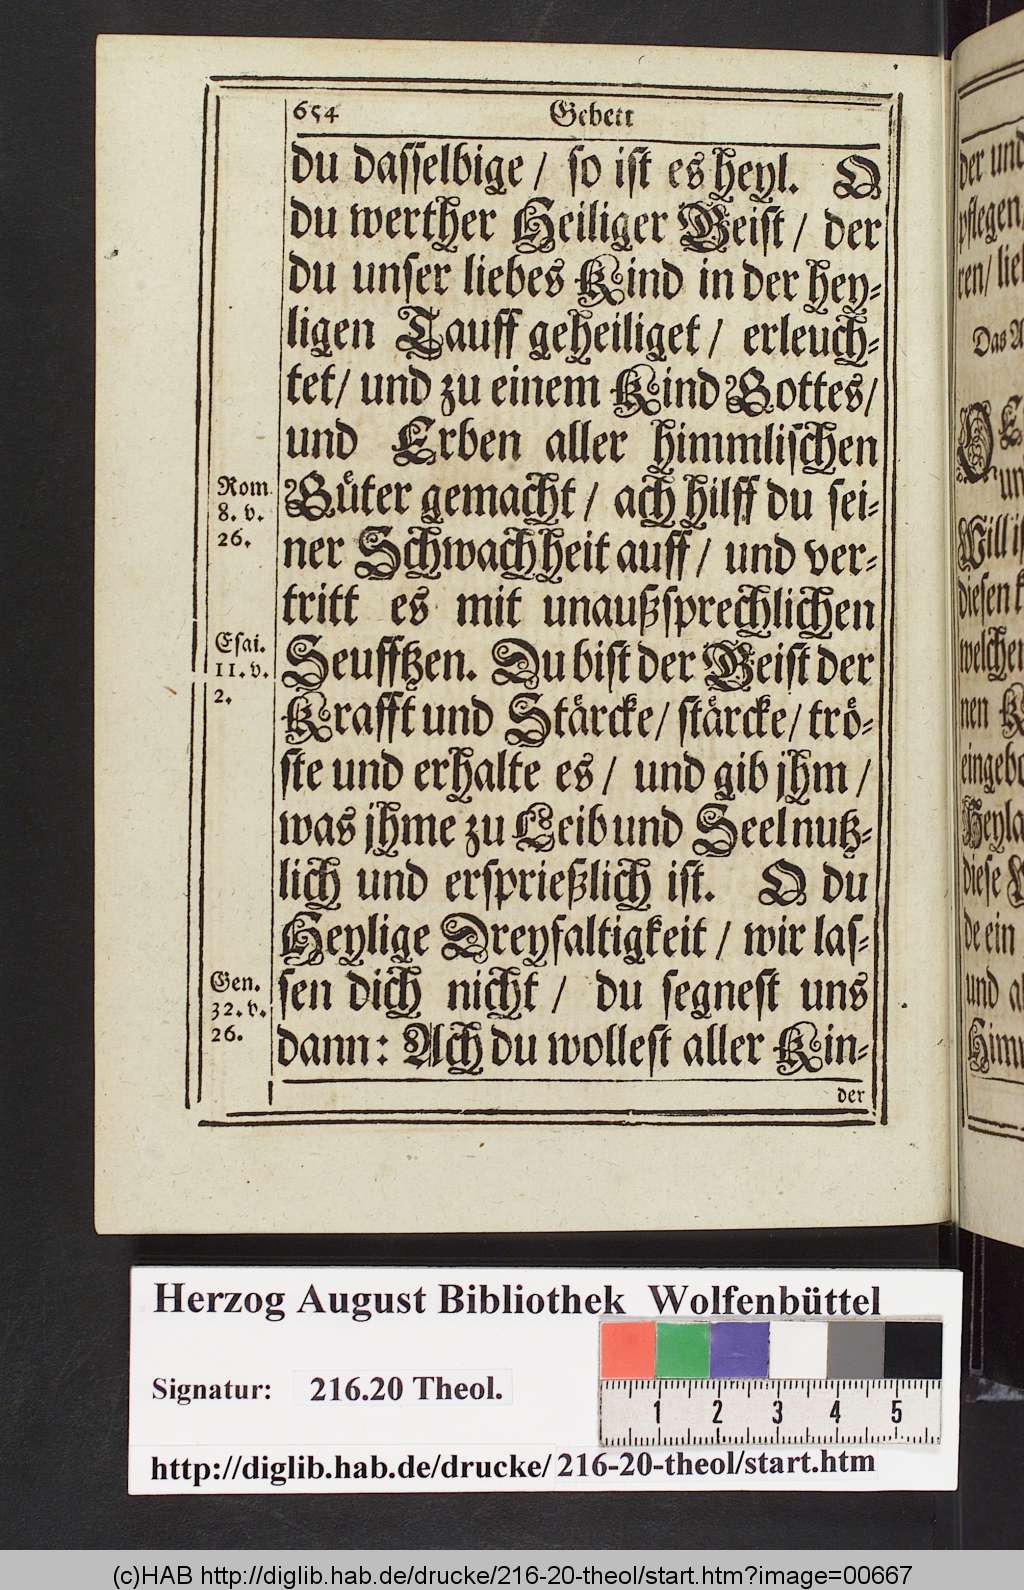 654 Gebett
du dasselbige / so ist es heyl. O
du werther Heiliger Geist / der
du unser liebes Kind in der hey-
ligen Tauff geheiliget / erleuch-
tet / und zu einem Kind Gottes /
und Erben aller himmlischen
Güter gemacht / ach hilff du sei-
ner Schwachheit auff / und ver-
tritt es mit unaußsprechlichen
Seufftzen. Du bist der Geist der
Krafft und Stärcke / stärcke / trö-
ste und erhalte es / und gib jhm /
was jhme zu Leib und Seel nutz-
lich und ersprießlich ist. O du
Heylige Dreyfaltigkeit / wir las-
sen dich nicht / du segnest uns
dann: Ach du wollest aller Kin-
der
Rom
8. v.
26.
Esai.
11. v.
2.
Gen.
32. v.
26.
der und
pflegen
ren / lie
Das A
un
Will i
diesen
welchen
nen K
eingebo
Heyla
diese
de ein
und a
Himm
Herzog August Bibliothek Wolfenbüttel
Signatur: 216.20 Theol.
1 2 3 4 5
http://diglib.hab.de/drucke/216-20-theol/start.htm
(c)HAB http://diglib.hab.de/drucke/216-20-theol/start.htm?image=00667